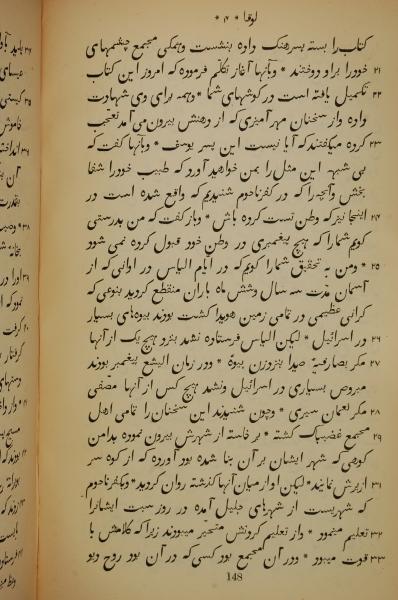 لوقا * ۴ *
کتاب را بسته بسرهنگ داده بنشست و همگی مجمع چشمهای
۲۱ خودرا براو دوختند * وبآنها آغاز تکلّم فرموده که امروز این کتاب
۲۲ تکمیل یافته است در گوشهای شما * وهمه برای وی شهادت
داده واز سخنان مهر آمیزی که از دهنش بیرون می آمد تعجّب
۲۳ کرده میگفتند که آیا نیست این پسر یوسف * وبآنها گفت که
بی شبهه این مثل را بمن خواهید آورد که طبیب خودرا شفا
بخش وآنچه را که در کفرناحوم شنیدیم که واقع شده است در
۲۴ اینجا نیز که وطن تست کرده باش * وباز گفت که من بدرستی
گویم شمارا که هیچ پیغمبری در وطن خود قبول کرده نمی شود
۲۵ * ومن به تحقیق شمارا گویم که در ایّام الیاس در اوانی که از
آسمان مدّت سه سال وشش ماه باران منقطع گردید بنوعی که
گرانی عظیمی در تمامی زمین هویدا گشت بودند بیوهای بسیار
۲۶ در اسرائیل * لیکن الیاس فرستاده نشد بنزد هیچ یک از آنها
۲۷ مگر بصارفیهٔ صیدا بنزد زن بیوهٔ * ودر زمان الیشع پیغمبر بودند
مبروص بسیاری در اسرائیل ونشد هیچ کس از آنها مصفّی
۲۸ مگر نعمان سیری * وچون شنیدند این سخنان را تمامی اهل
۲۹ مجمع غضبناک گشته * بر خاسته از شهرش بیرون نموده بدامن
کوهی که شهر ایشان بر آن بنا شده بود آورده که از کوه سر
۳۱ ازیرش نمایند * لیکن او از میان آنها گذشته روان گردید * وبکفرناحوم
که شهریست از شهرهای جلیل آمده در روز سبت ایشانرا
۳۲ تعلیم مینمود * واز تعلیم کردنش متحیّر میبودند زیرا که کلامش با
۳۳ قوّت میبود * ودر آن مجمع بود کسی که در آن بود روح دیو
148